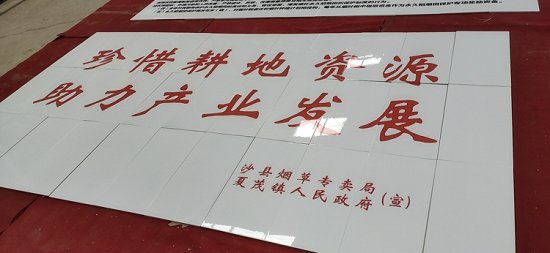 珍惜耕地资源
助力产业发展
沙县烟草专卖局
夏茂镇人民政府(宣)